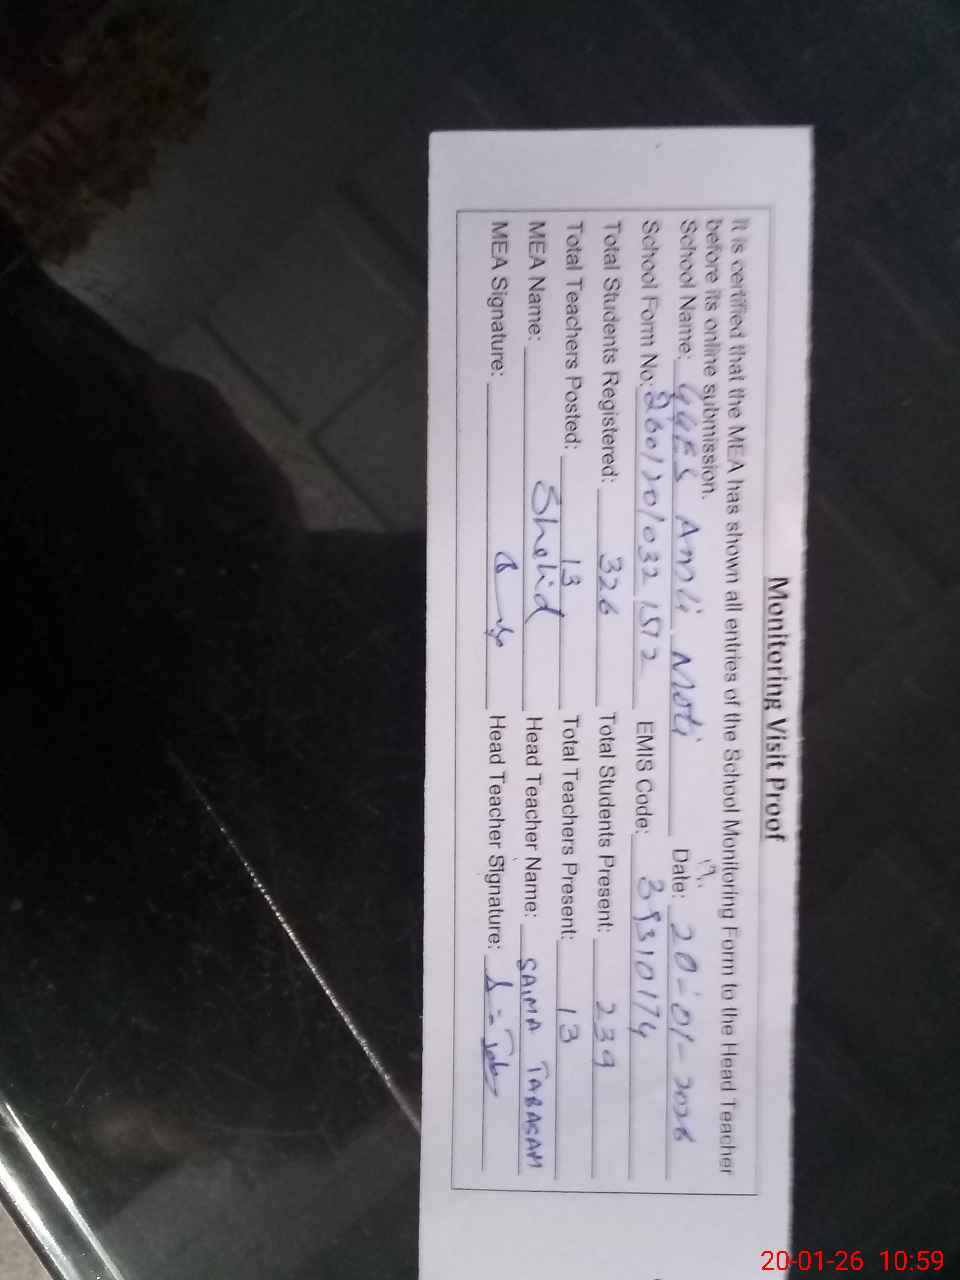 Monitoring Visit Proof
It is certified that the MEA has shown all entries of the School Monitoring Form to the Head Teacher
before its online submission.
School Name: GGES Amli Moti Date: 20-01-2026
School Form No: EMIS Code:
Total Students Registered: 326 Total Students Present: 239
Total Teachers Posted: 13 Total Teachers Present: 13
MEA Name: Shahid Head Teacher Name: SAIMA TABASAM
MEA Signature: Head Teacher Signature:
20-01-26 10:59